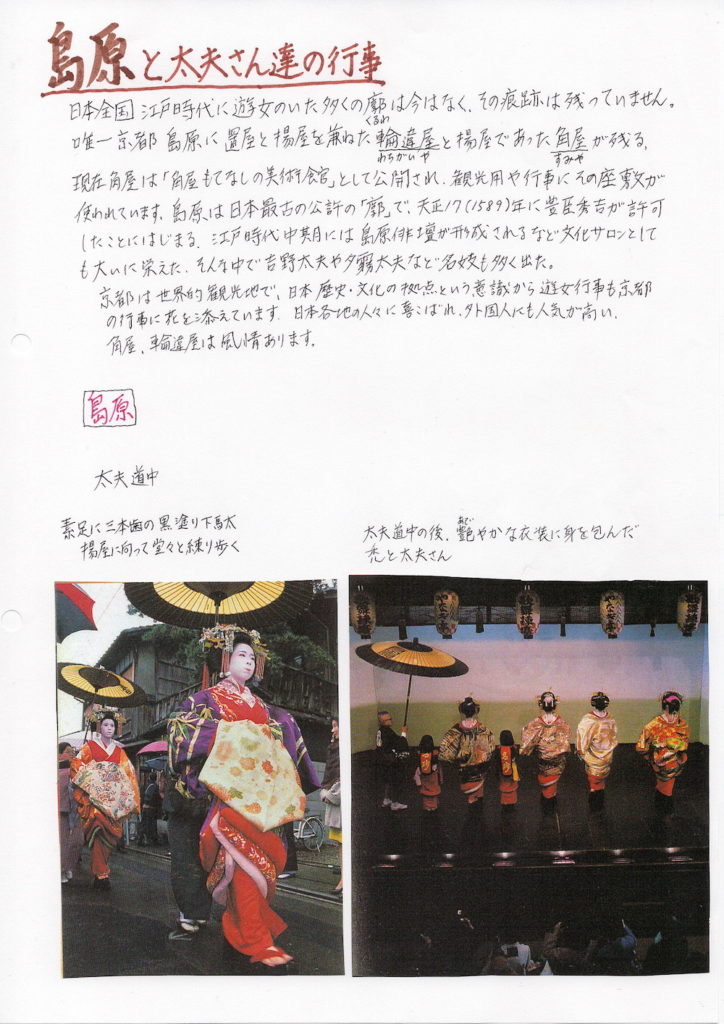 島原と太夫さん達の行事
日本全国 江戸時代に遊女のいた多くの廓は今はなく、その痕跡は残っていません。
くるわ
唯一京都 島原に置屋と揚屋を兼ねた輪違屋と揚屋であった角屋が残る。
わちがいや
すみや
現在角屋は「角屋もてなしの美術館」として公開され、観光用や行事にその座敷が
使われています。島原は日本最古の公許の「廓」で、天正17(1589)年に豊臣秀吉が許可
したことにはじまる。江戸時代中期には島原俳壇が形成されるなど文化サロンとして
も大いに栄えた。そんな中で吉野太夫や夕霧太夫など名妓も多く出た。
京都は世界的観光地で、日本歴史・文化の拠点という意識から遊女行事も京都
の行事に花を添えています。日本各地の人々に喜こばれ、外国人にも人気が高い。
角屋、輪違屋は風情あります。
島原
太夫道中
素足に三本歯の黒塗り下駄太
揚屋に向って堂々と練り歩く
太夫道中の後、艶やかな衣装に身を包んだ
あで
禿と太夫さん